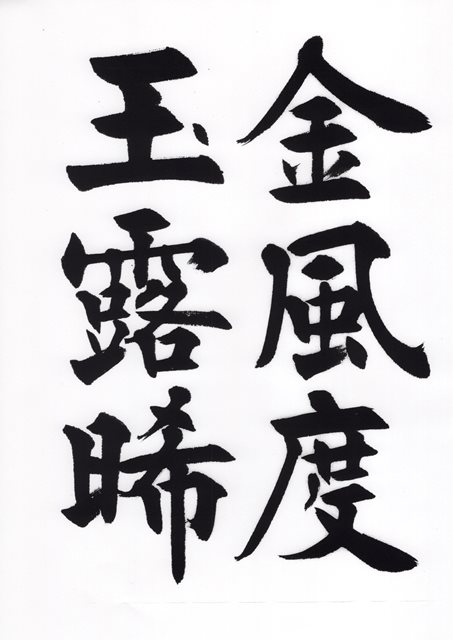 金風度
玉露晞